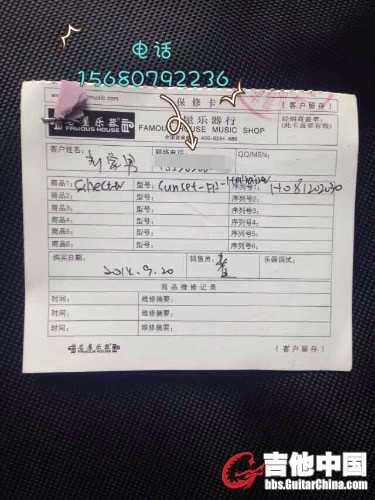 电话
15680792236
music.com
保修卡
〔客户留存〕
名屋乐器
FAMOUS HOUSE
屋乐器行
FAMOUS HOUSE MUSIC SHOP
400-6244-680
经销商盖章:
(此卡盖章有效)
客户姓名:
联络电话:
QQ/MSN:
商品1: Schecter 型号: Sunset-FR- 序列号1: H08120230
商品2: 型号: 序列号2:
商品3: 型号: 序列号3:
商品4: 型号: 序列号4:
商品5: 型号: 序列号5:
商品6: 型号: 序列号6:
购买日期: 2014.9.20 销售员: 乐器调试:
商品维修记录
时间: 维修摘要:
时间: 维修摘要:
时间: 维修摘要:
名屋乐器
FAMOUS HOUSE
〔客户留存〕
吉他中国
bbs.GuitarChina.com